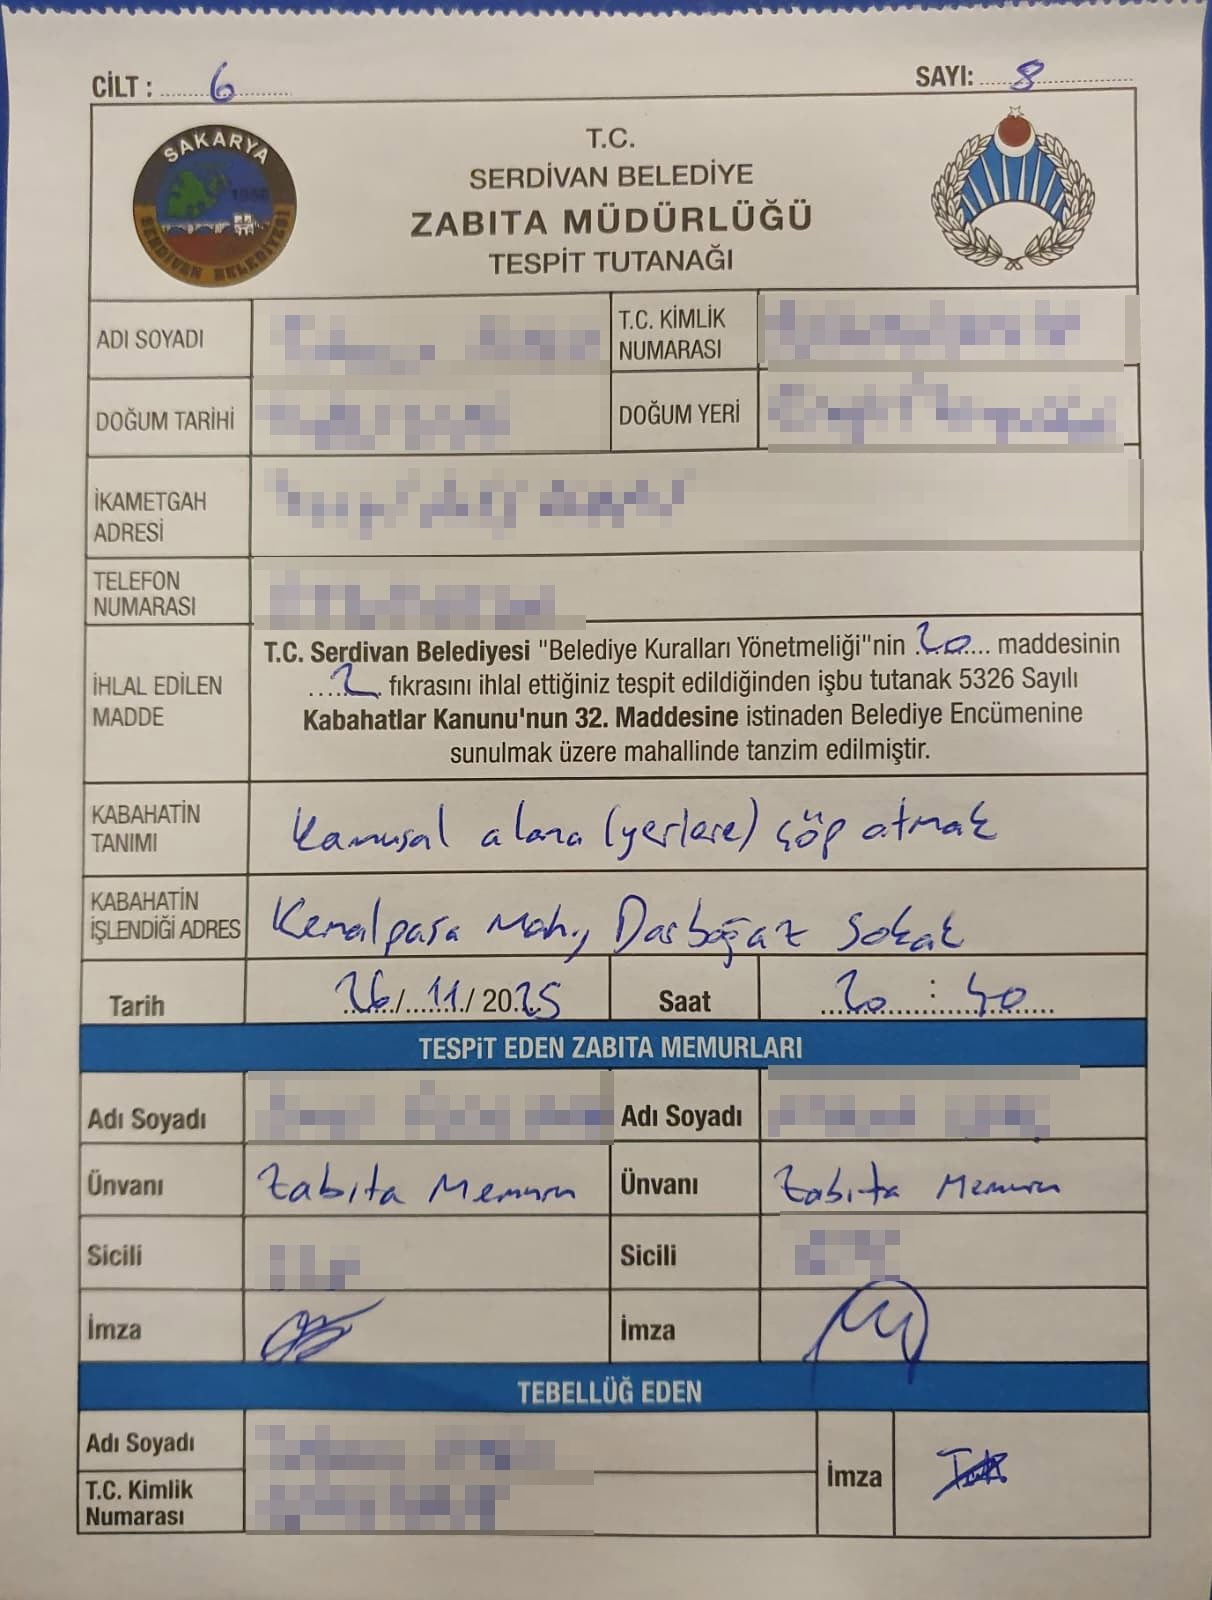 CİLT : 6
SAYI: 8
SAKARYA
1956
SERDİVAN BELEDİYESİ
T.C.
SERDİVAN BELEDİYE
ZABITA MÜDÜRLÜĞÜ
TESPİT TUTANAĞI
ADI SOYADI
T.C. KİMLİK
NUMARASI
DOĞUM TARİHİ
DOĞUM YERİ
İKAMETGAH
ADRESİ
TELEFON
NUMARASI
İHLAL EDİLEN
MADDE
T.C. Serdivan Belediyesi "Belediye Kuralları Yönetmeliği"nin 20 maddesinin
2 fıkrasını ihlal ettiğiniz tespit edildiğinden işbu tutanak 5326 Sayılı
Kabahatlar Kanunu'nun 32. Maddesine istinaden Belediye Encümenine
sunulmak üzere mahallinde tanzim edilmiştir.
KABAHATİN
TANIMI
Kamusal alana (yerlere) çöp atmak
KABAHATİN
İŞLENDİĞİ ADRES
Kemalpaşa Mah., Darboğaz Sokak
Tarih
26/11/2025
Saat
20:40
TESPiT EDEN ZABITA MEMURLARI
Adı Soyadı
Adı Soyadı
Ünvanı
Zabıta Memuru
Ünvanı
Zabıta Memuru
Sicili
Sicili
İmza
İmza
TEBELLÜĞ EDEN
Adı Soyadı
T.C. Kimlik
Numarası
İmza